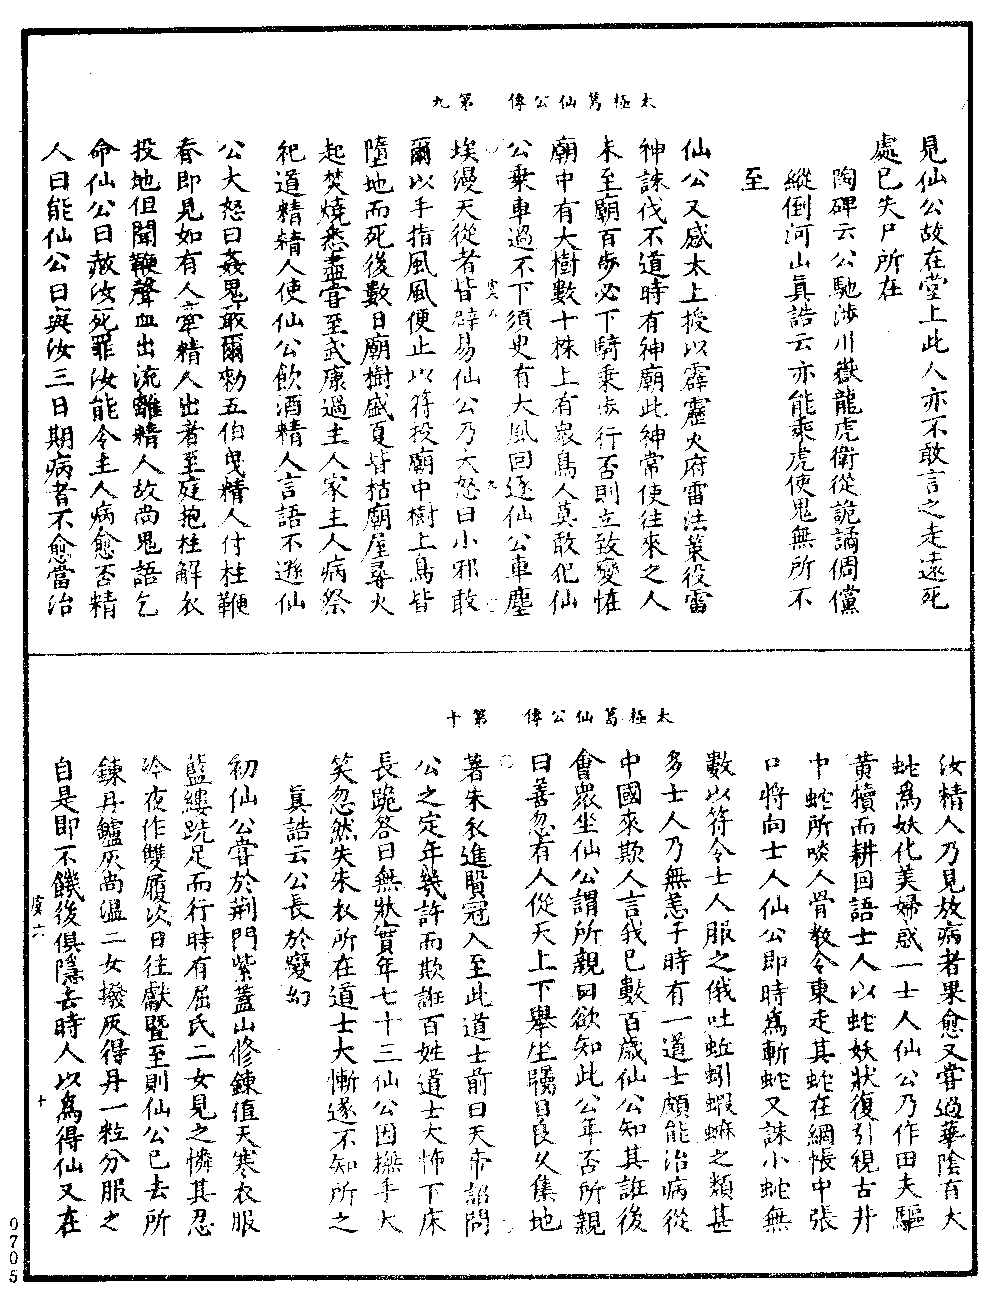 太極葛仙公傳　第九
見仙公故在堂上此人亦不敢言之走遠死
處已失尸所在
陶碑云公馳涉川嶽龍虎衛從詭譎倜儻
縱倒河山真誥云亦能乘虎使鬼無所不
至
仙公又感太上授以霹靂火府雷法策役雷
神誅伐不道時有神廟此神常使往來之人
未至廟百步必下騎乘步行否則立致變怪
廟中有大樹數十株上有衆鳥人莫敢犯仙
公乗車過不下須臾有大風回逐仙公車塵
埃漫天從者皆辟易仙公乃大怒曰小邪敢
爾以手指風風便止以符投廟中樹上鳥皆
墮地而死後數日廟樹盛夏皆枯廟屋尋火
起焚燒悉盡嘗至武康過主人家主人病祭
祀道精精人使仙公飲酒精人言語不遜仙
公大怒曰姦男敢爾勑五伯曳精人付柱鞭
春即見如有人牽精人出者至庭抱柱解衣
投地但聞鞭聲血出流離精人故尚鬼語乞
命仙公曰赦汝死罪汝能令主人病愈否精
人曰能仙公曰與汝三日期病者不愈當治
虞六　九
太極葛仙公傳　第十
汝精人乃見放病者果愈又嘗過華陰有大
蛇爲妖化美婦惑一士人仙公乃作田夫驅
黄犢而耕回語士人以蛇妖狀復引視古井
中蛇所啖人骨教令東走其蛇在綱帳中張
口將向士人仙公即時爲斬蛇又誅小蛇無
數以符令士人服之俄吐蚯蚓蝦蟆之類甚
多士人乃無恙于時有一道士頗能治病從
中國來欺人言我已數百歲仙公知其誑後
會衆坐仙公謂所親曰欲知此公年否所親
曰善忽有人從天上下舉坐矚目良久集地
著朱衣進賢冠入至此道士前曰天帝詔問
公之定年幾許而欺誑百姓道士大怖下床
長跪答曰無狀實年七十三仙公因撫手大
笑忽然失朱衣所在道士大慚遂不知所之
真誥云公長於變幻
初仙公嘗於荆門紫蓋山修鍊值天寒衣服
藍縷跣足而行時有屈氏二女見之憐其忍
冷夜作雙履次日往獻暨至則仙公已去所
鍊丹鑪灰尚溫二女撥灰得丹一粒分服之
自是即不饑後俱隱去時人以爲得仙又在
虞六　十
0705